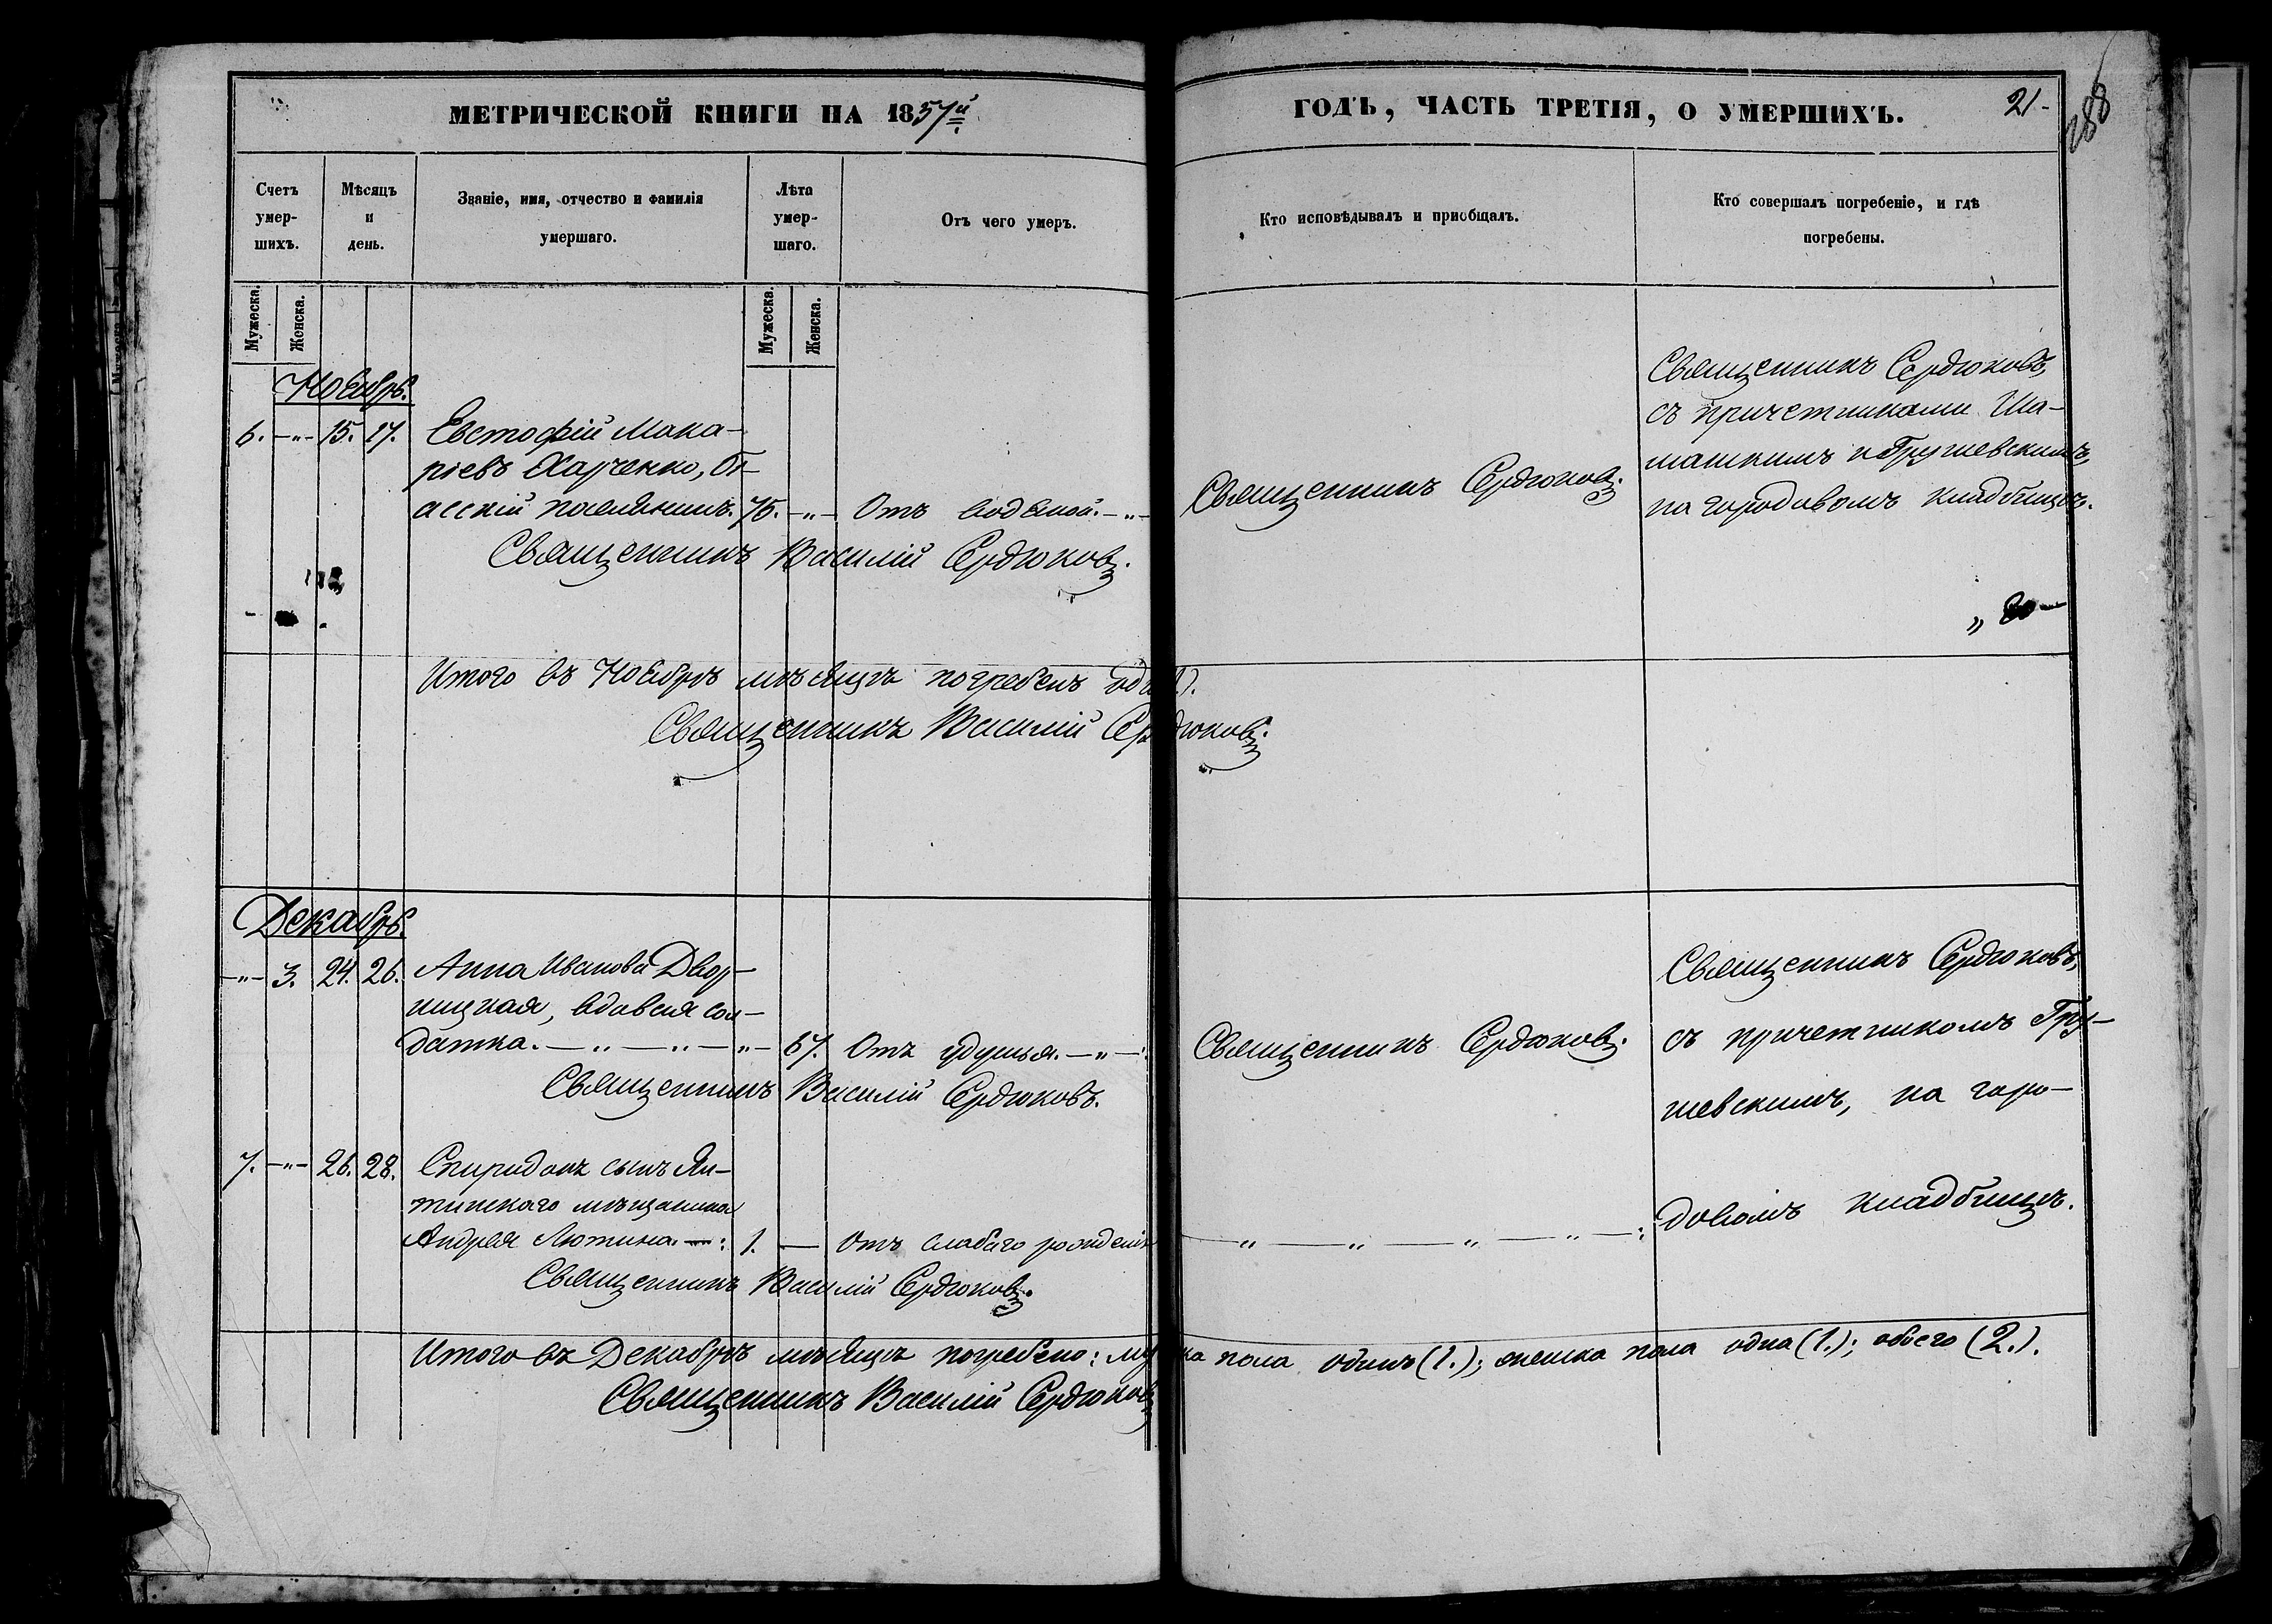 МЕТРИЧЕСКОЙ КНИГИ НА 1857й
ГОДЪ, ЧАСТЬ ТРЕТІЯ, О УМЕРШИХЪ.
21-
288
Счетъ умер-шихъ.
Мѣсяцъ и день.
Званіе, имя, отчество и фамилія умершаго.
Лѣта умер-шаго.
Отъ чего умеръ.
Кто исповѣдывалъ и пріобщалъ.
Кто совершалъ погребеніе, и гдѣ погребены.
Мужеска.
Женска.
Мужеска.
Женска.
Ноябрь.
6. -„- 15. 17. Евстафій Мака-
ріевъ Харченко,
поселянинъ. 75. -„- Отъ водяной. -„-
Священникъ Василій Сердюковъ.
Священникъ Сердюковъ.
Священникъ Сердюковъ,
съ причетниками Ша-
машкимъ и Грушевскимъ,
на городовомъ кладбищѣ.
Итого въ Ноябрѣ мѣсяцѣ погребенъ
Священникъ Василій Сердюковъ.
Декабрь.
-„- 3. 24. 26. Анна Иванова Двор-
ницкая, вдовая сол-
датка. -„-„-„- 67. Отъ удушья. -„-
Священникъ Василій Сердюковъ.
Священникъ Сердюковъ.
Священникъ Сердюковъ,
съ причетникомъ Гру-
шевскимъ, на горо-
довомъ кладбищѣ.
7. -„- 26. 28. Спиридонъ сынъ Ял-
тинскаго мѣщанина
Андрея Лютина. -: 1. — Отъ слабаго рожденія
-„-„-„-„-:
Священникъ Василій Сердюковъ.
Итого въ Декабрѣ мѣсяцѣ погребено: муж ка пола одинъ (1.); женска пола одна (1.); обоего (2.).
Священникъ Василій Сердюковъ